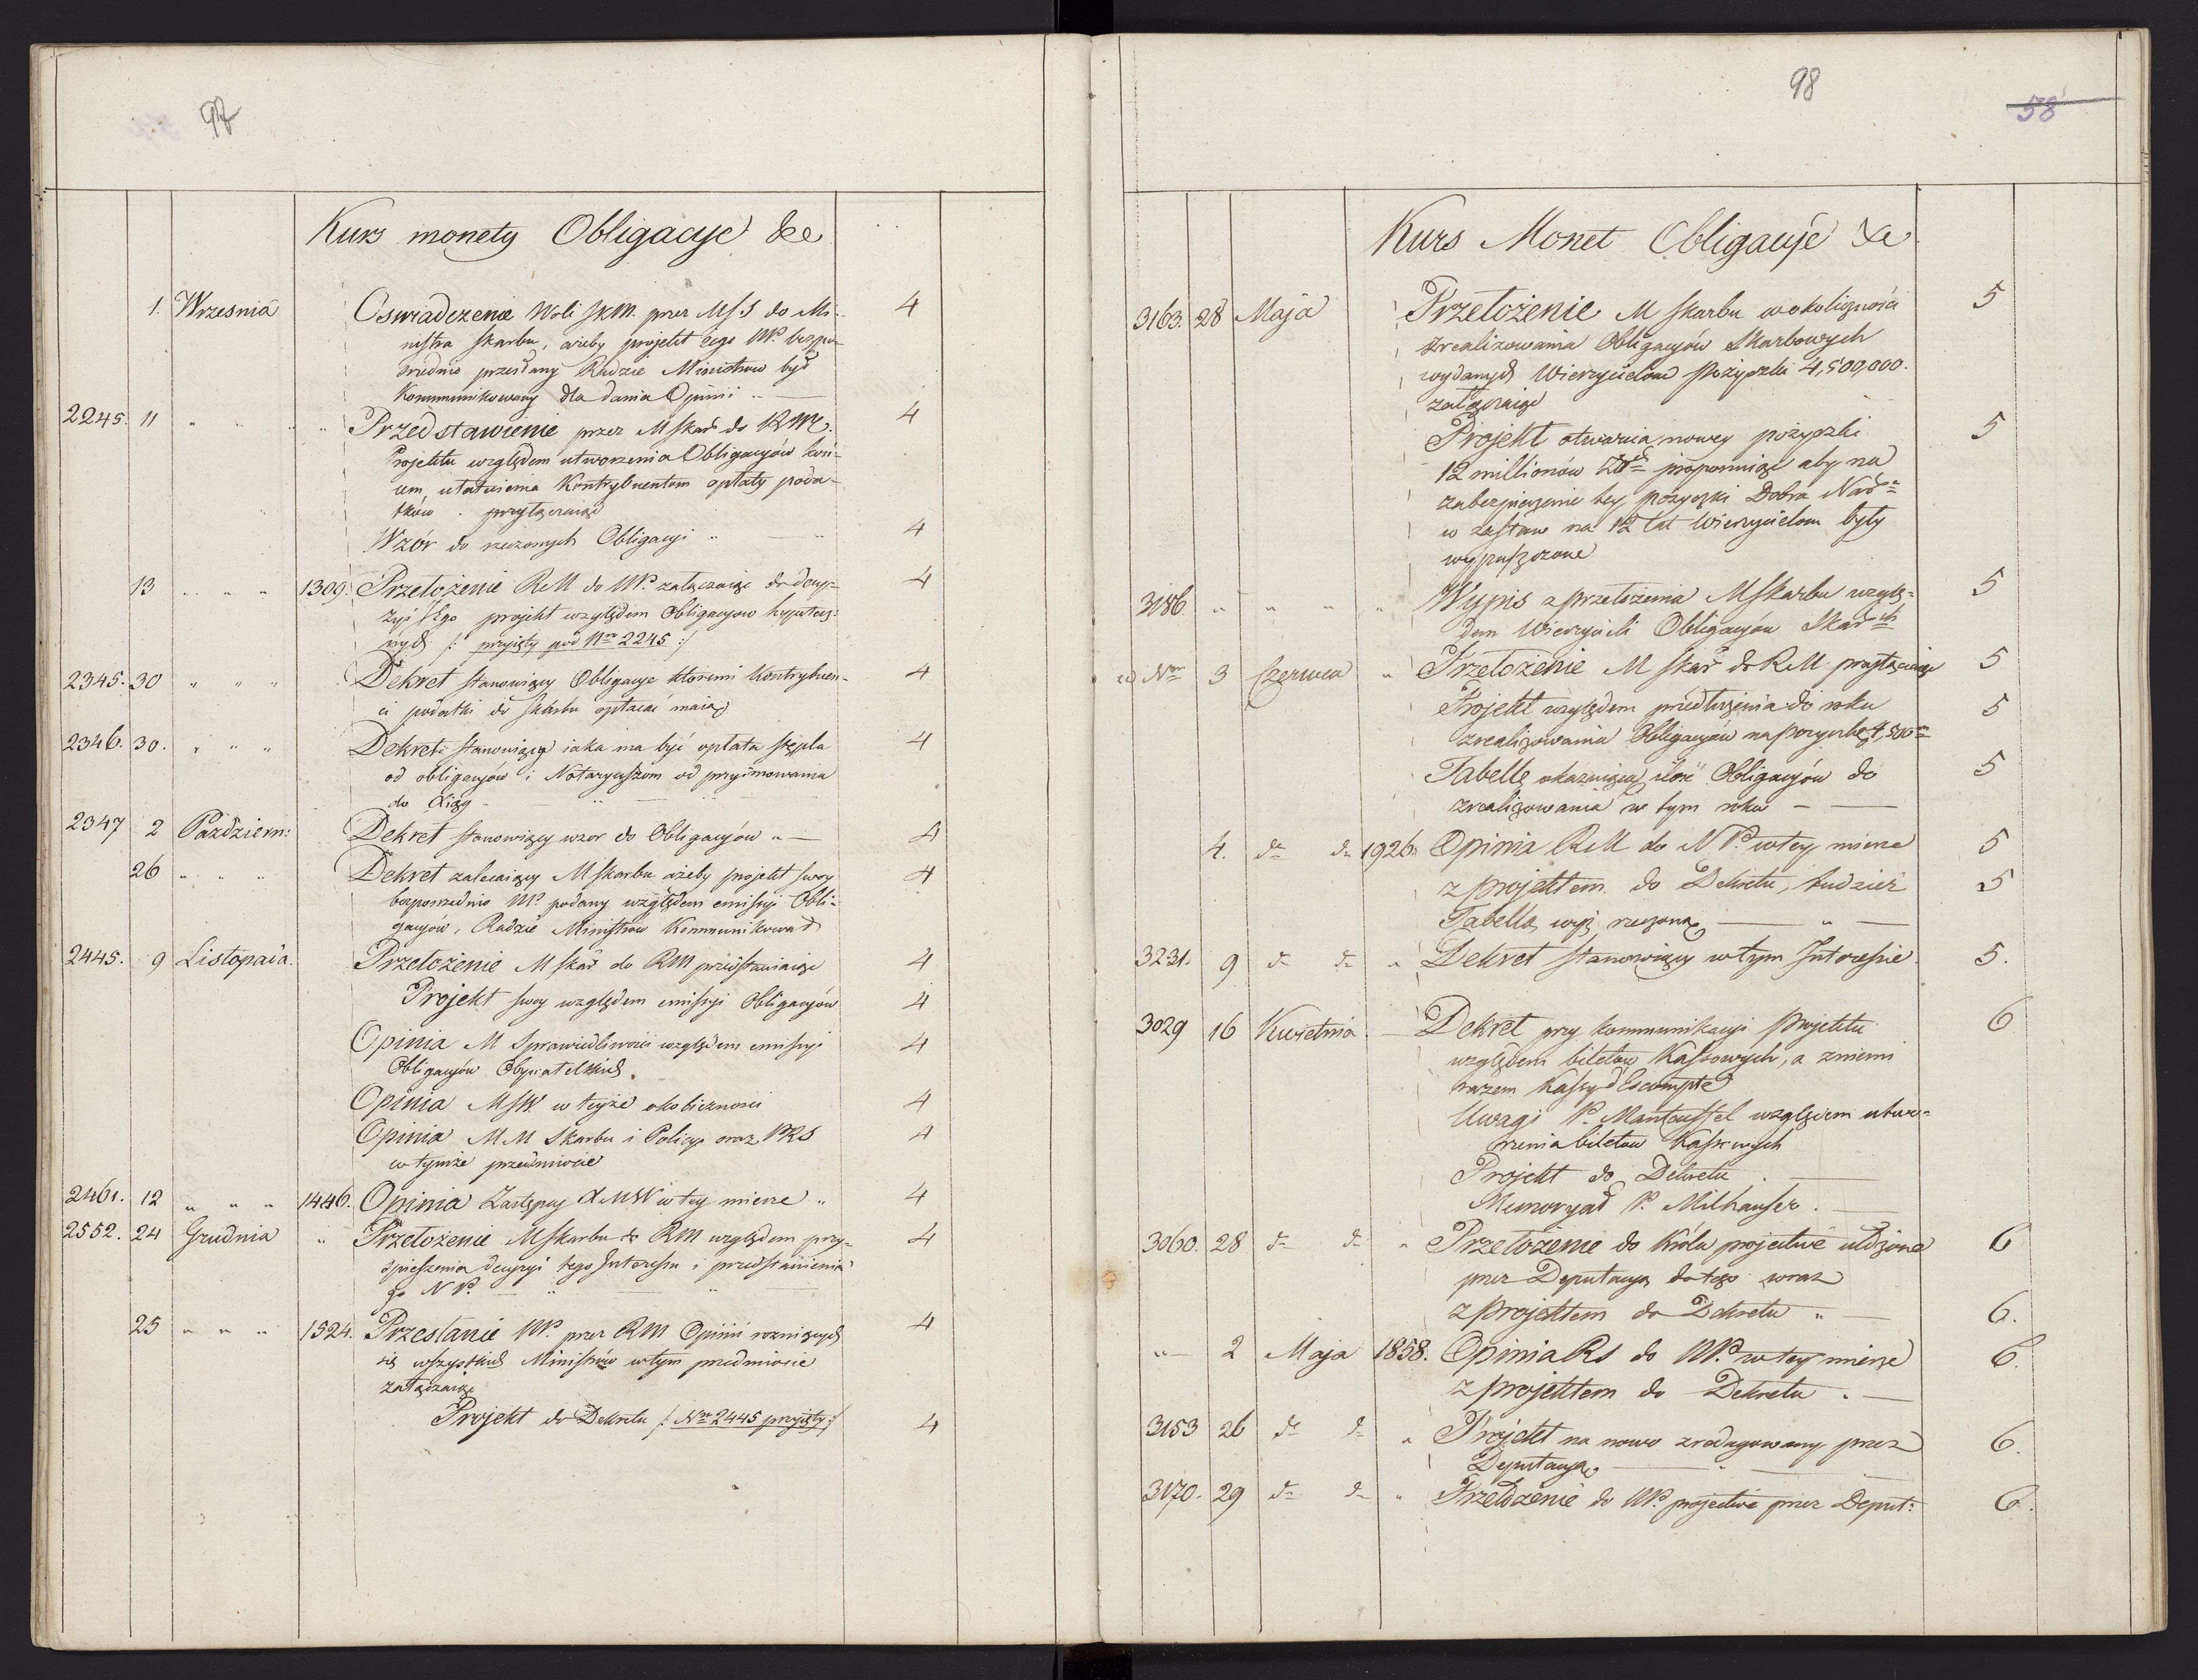 97
Kurs monety Obligacye &c
1. Wrzesnia Oswiadczenie Woli JKM. przez MSS do Mi- 4
nistra skarbu, ażeby projekt Jego NP. bezpo-
średnio przesłany Radzie Ministrow był
Kommunikowany dla dania Opinii
2245. 11 " " " Przedstawienie przez M skar do RM. 4
Projektu względem utworzenia Obligacyów koń-
cem ułatwienia Kontrybuentom opłaty poda-
tków . przyłączaiąc
Wzór do rzeczonych Obligacyi " — " 4
13 " " " 1309. Przełożenie RM do NP. załączaiąc do decy- 4
zyi Jego projekt względem Obligacyow hypotecz:
nych /: przyięty pod Nrm 2245 :/
2345. 30 " " " Dekret stanowiący Obligacye któremi Kontrybuen- 4
ci podatki do skarbu opłacać maią
2346. 30. " " " Dekret stanowiący iaka ma być opłata stępla 4
od obligacyów i Notaryuszom od przyimowania
do Xiąg — " — " —
2347 2 Październ: Dekret stanowiący wzor do Obligacyów " — 4
26 " " " Dekret zalecaiący M skarbu ażeby projekt swoy 4
bezpośrednio NP. podany względem emissyi Obli-
gacyów, Radzie Ministrów Kommunikował
2445. 9 Listopada. Przełożenie M skar do RM przedstawiaiąc 4
Projekt swoy względem emissyi Obligacyów 4
Opinia M Sprawiedliwości względem emissyi 4
Obligacyów Obywatelskich.
Opinia MSW. w teyże okoliczności 4
Opinia MM Skarbu i Policyi oraz PRS 4
w tymże przedmiocie
2461. 12 " " " 1446. Opinia Zastępcy MSW w tey mierze " 4
2552. 24 Grudnia " Przełożenie M skarbu do RM względem przy- 4
spieszenia decyzyi tego Interessu i przedstawienia
go NP. — " — " —
25 " " " 1524. Przesłanie NP. przez RM Opinii rożniących 4
się wszystkich Ministrów w tym przedmiocie
załączaiąc
Projekt do Dekretu /: Nrm 2445 przyięty :/ 4
98
58
Kurs Monet Obligacye &c
3163. 28 Maja Przełożenie M skarbu w okoliczności 5
zrealizowania Obligacyów Skarbowych
wydanych Wierzycielom pożyczki 4,500,000.
załączaiąc
Projekt otwarcia nowey pożyczki 5
12 millionów Złch proponuiąc aby na
zabezpieczenie tey pożyczki Dobra Nar
w zastaw na 12 lat Wierzycielom były
wypuszczone
3186. " " " " Wypis z przełożenia M Skarbu wzglę- 5
dem Wierzycieli Obligacyów Skarch
ad Nrm 3 Czerwca " Przełożenie M skar do RM. przyłączaiąc 5
Projekt względem przedłużenia do roku 5
zrealizowania Obligacyów na pożyczkę 4,500
Tabelle okazuiącą ilość Obligacyów do 5
zrealizowania w tym roku — —
4. do do 1926. Opinia RM do NP. w tey mierze 5
z projektem do Dekretu, tudzież 5
Tabellą wyż rzeczoną — " —
3231. 9 do do " Dekret stanowiący w tym Interessie 5.
3029 16 Kwietnia. — Dekret przy kommunikacyi Projektu 6
względem biletów Kassowych, a zniemi
razem Kassy d'Escompte
Uwagi P. Manteuffel względem utwo-
rzenia biletów Kassowych
Projekt do Dekretu . —
Memoryał P. Milhauser . —
3060. 28 do do " Przełożenie do Króla projective ułożone 6
przez Deputacyą do tego wraz
z projektem do Dekretu " — 6.
" — 2 Maja 1858. Opinia RS do NP. w tey mierze 6.
z projektem do Dekretu . —
3153 26 do do " Projekt na nowo zredagowany przez 6.
Deputacyą. — " —
3170. 29 do do " Przełożenie do NP. projective przez Deput: 6.